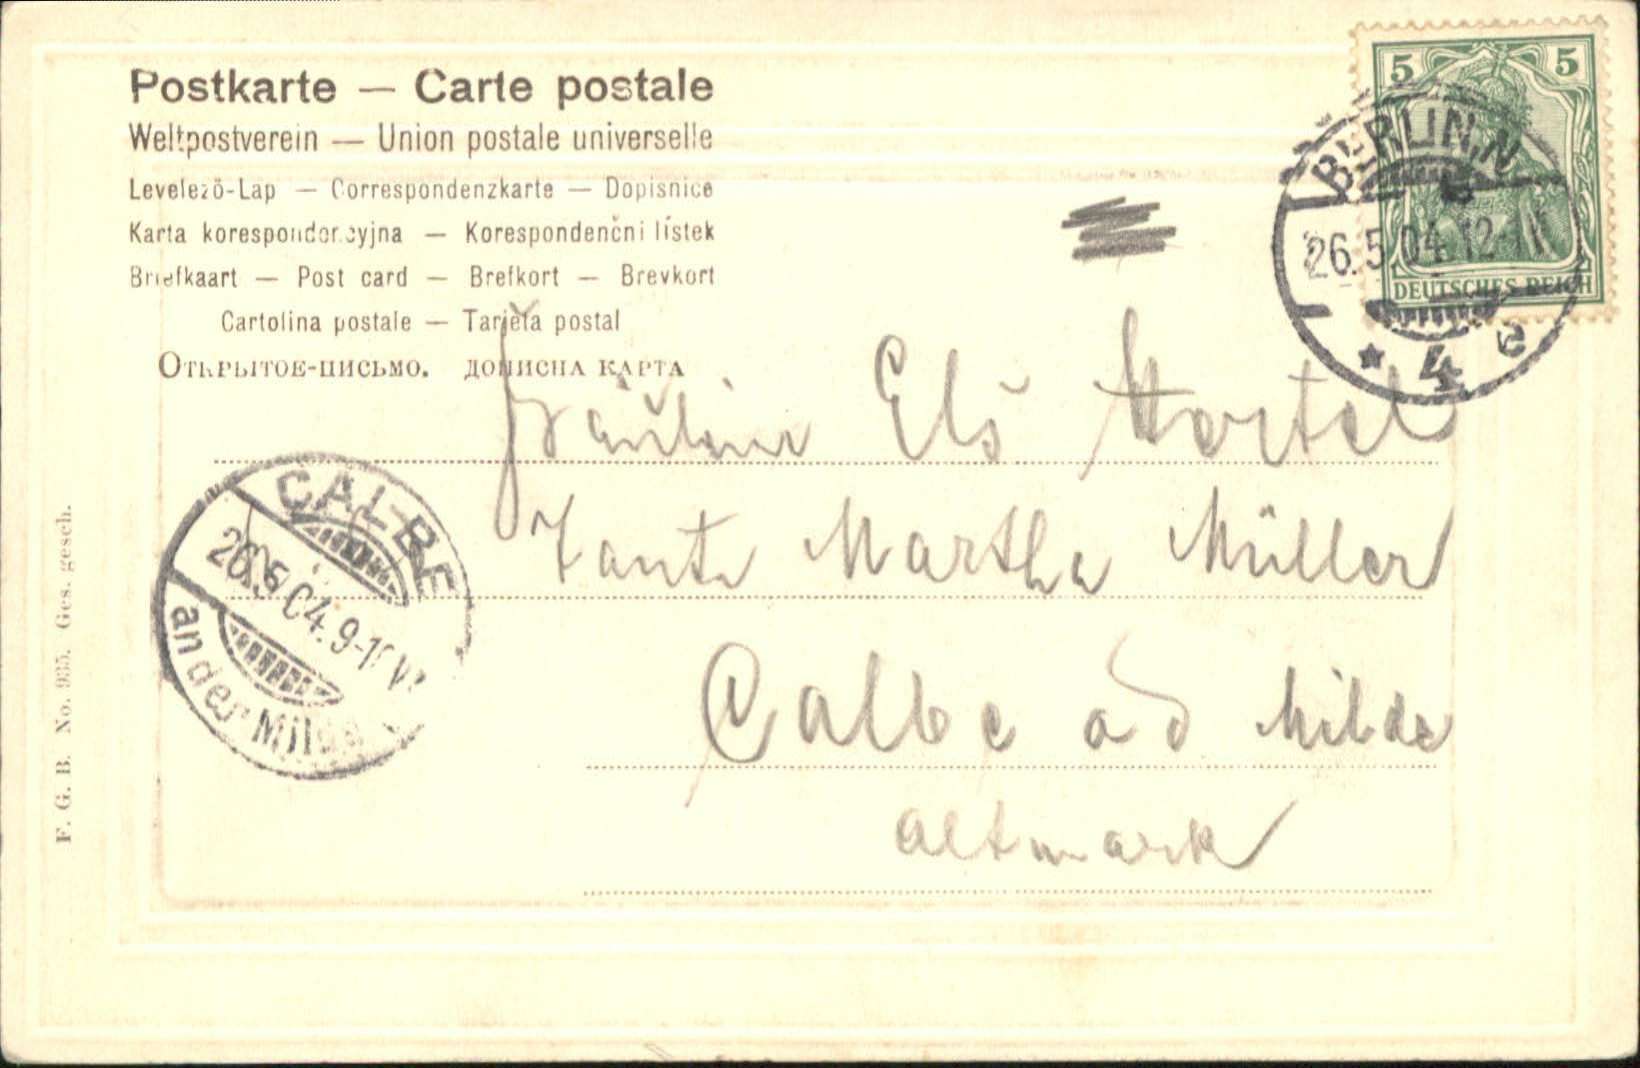 Postkarte — Carte postale
Weltpostverein — Union postale universelle
Levelező-Lap — Correspondenzkarte — Dopisnice
Karta korespondencyjna — Korespondenčni lístek
Briefkaart — Post card — Brefkort — Brevkort
Cartolina postale — Tarjeta postal
Открытое-письмо. дописна карта
5 5
DEUTSCHES REICH
BERLIN, N.
26.5.04.12-1N
* 4 e
Fräulein Els Hertel
Tante Martha Müller
Calbe a d Milde
Altmark
CALBE
26.5.04.9-10V.
an der Milde
F. G. B. No. 935. Ges. gesch.